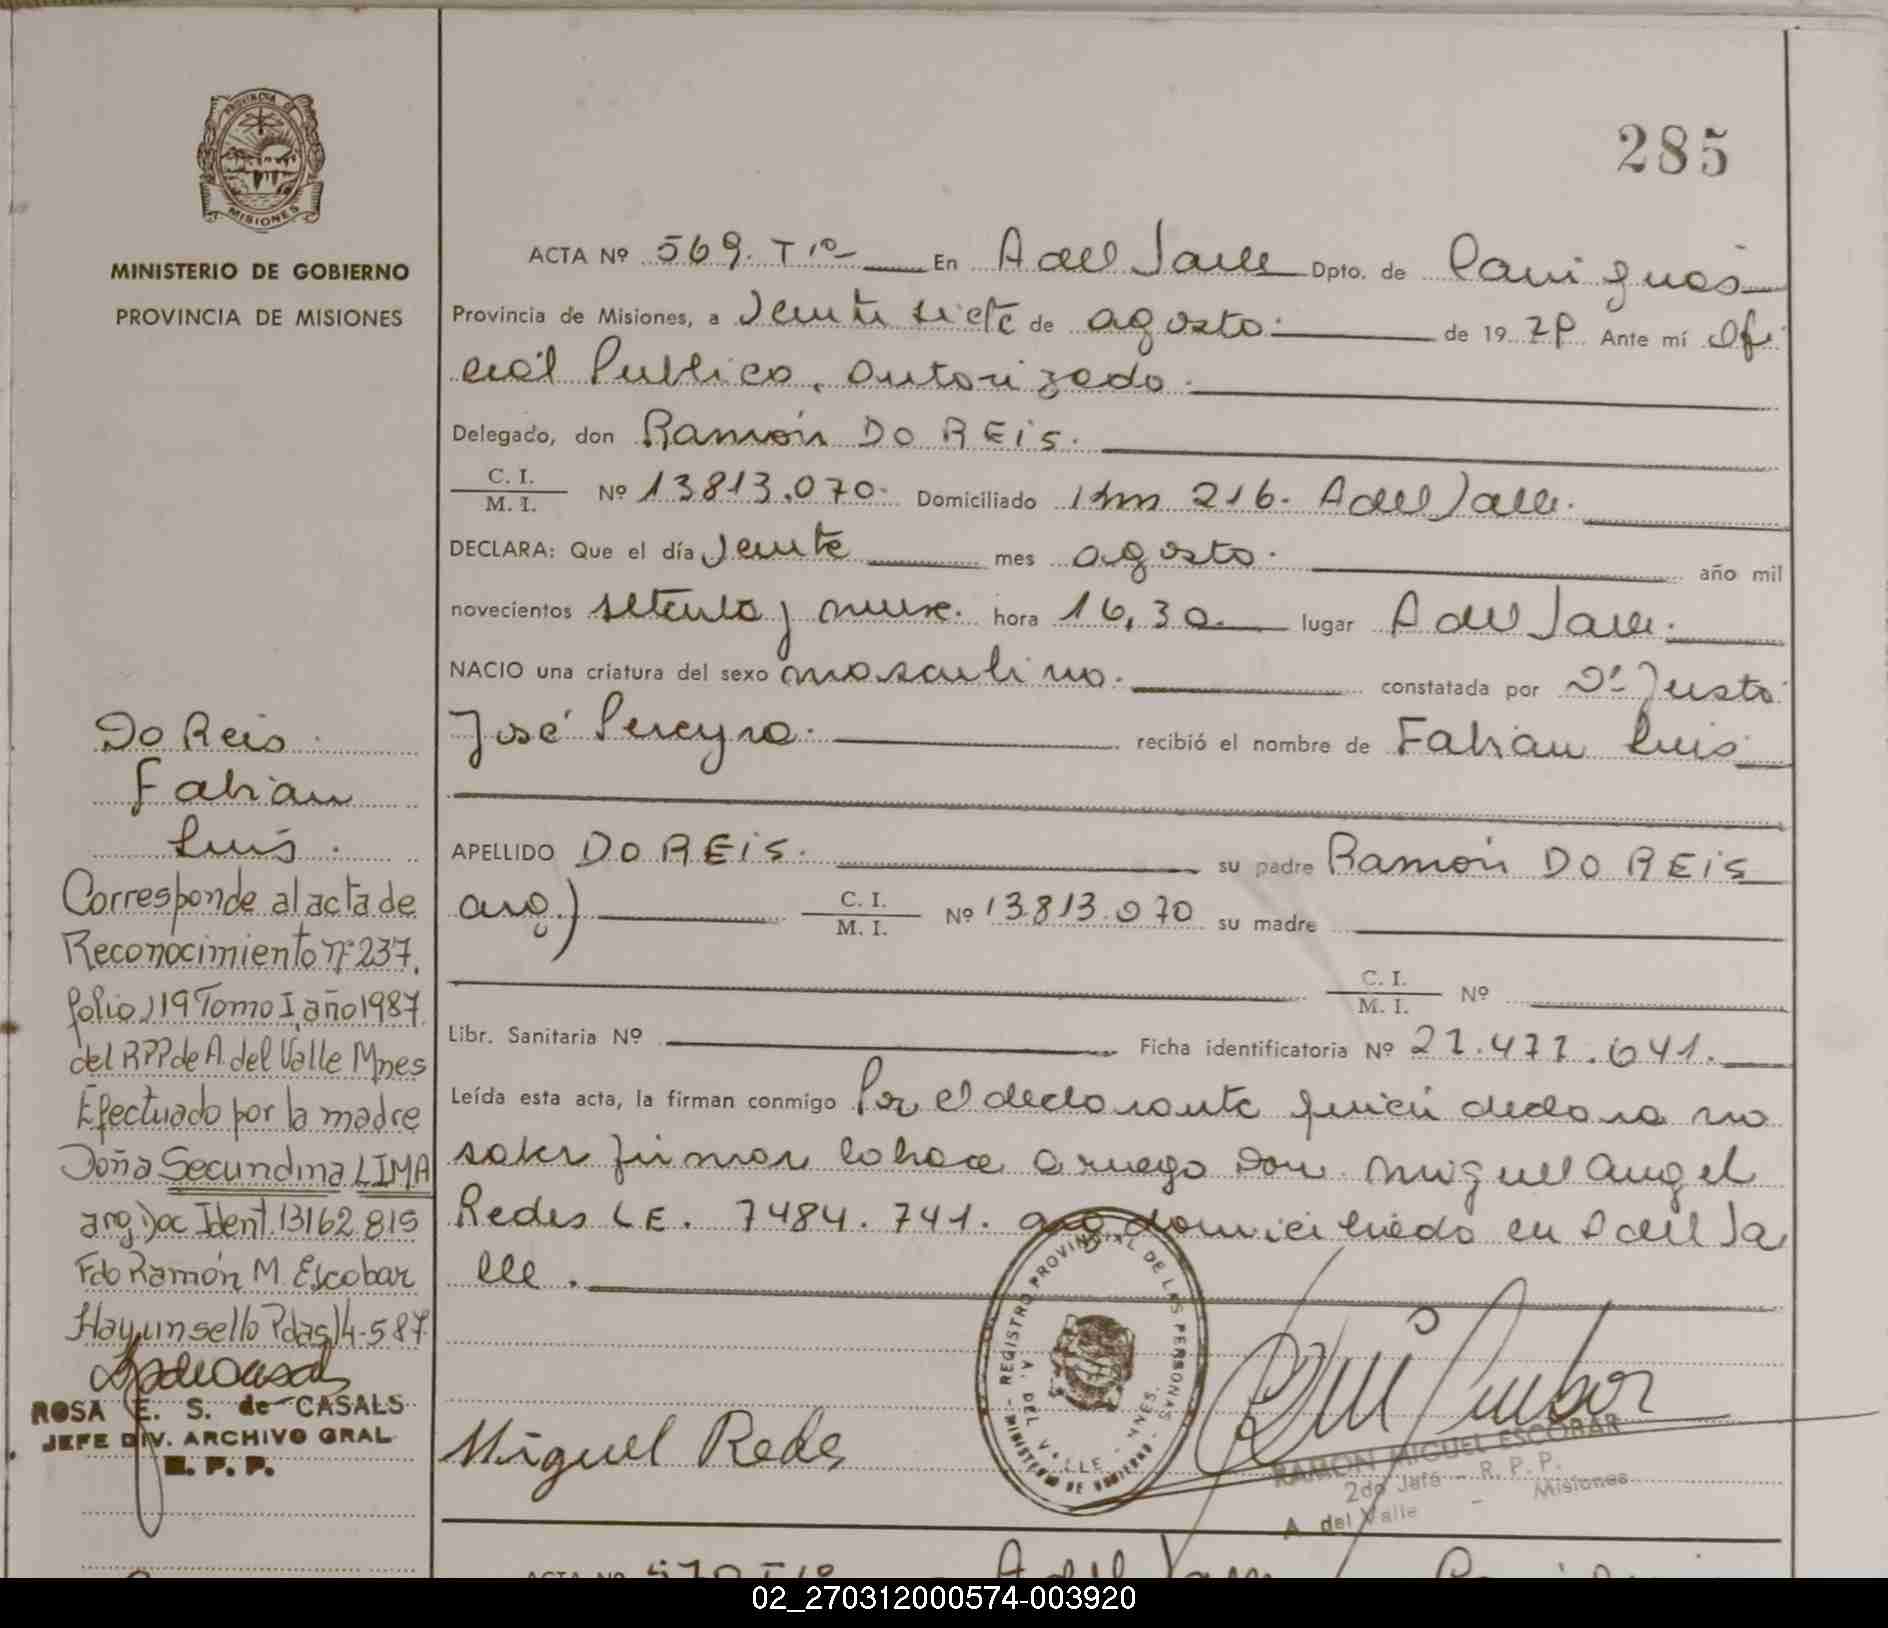 PROVINCIA DE
MISIONES
MINISTERIO DE GOBIERNO
PROVINCIA DE MISIONES
285
ACTA Nº 569. Tº1º En A del Valle Dpto. de Cainguás
Provincia de Misiones, a Veinte siete de agosto. de 1979. Ante mí Ofi
cial Publico, Autorizado.
Delegado, don Ramón DO REIS.
C. I.
M. I. Nº 13813.070. Domiciliado Km 216. A del Valle.
DECLARA: Que el día Veinte mes agosto. año mil
novecientos setenta y nueve. hora 16,30. lugar A del Valle.
NACIO una criatura del sexo masculino. constatada por Dr. Justo
José Pereyra. recibió el nombre de Fabian Luis
APELLIDO DO REIS. su padre Ramón DO REIS
arg.) C. I.
M. I. Nº 13.813.070 su madre
C. I.
M. I. Nº
Libr. Sanitaria Nº Ficha identificatoria Nº 27.477.641.
Leída esta acta, la firman conmigo Por el declarante quien declara no
saber firmar lo hace a ruego Don Miguel Angel
Redes L.E. 7484.741. arg domiciliado en A del Va
lle.
Do Reis.
Fabian
Luis.
Corresponde al acta de
Reconocimiento nº 237,
folio 119 Tomo I, año 1987
del RPP de A. del Valle Mnes
Efectuado por la madre
Doña Secundina LIMA
arg. Doc Ident. 13162.815
Fdo Ramón M. Escobar
Hay un sello Pdas 14-5-87.
ROSA E. S. de CASALS
JEFE DIV. ARCHIVO GRAL
R. P. P.
Miguel Redes
REGISTRO PROVINCIAL DE LAS PERSONAS
MINISTERIO DE GOBIERNO
A. DEL VALLE - MNES.
RAMON MIGUEL ESCOBAR
2do Jefe - R. P. P.
A. del Valle - Misiones
ACTA Nº 570 Tº1º A del Valle
02_270312000574-003920